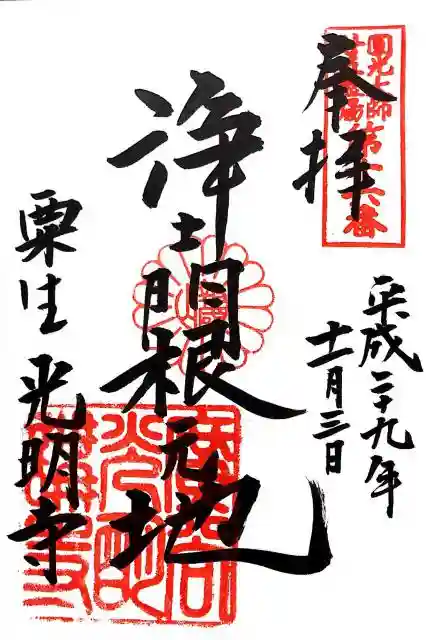 奉拝
圓光大師
第十六番
平成二十九年
十一月三日
浄土門根元地
粟生
光明寺